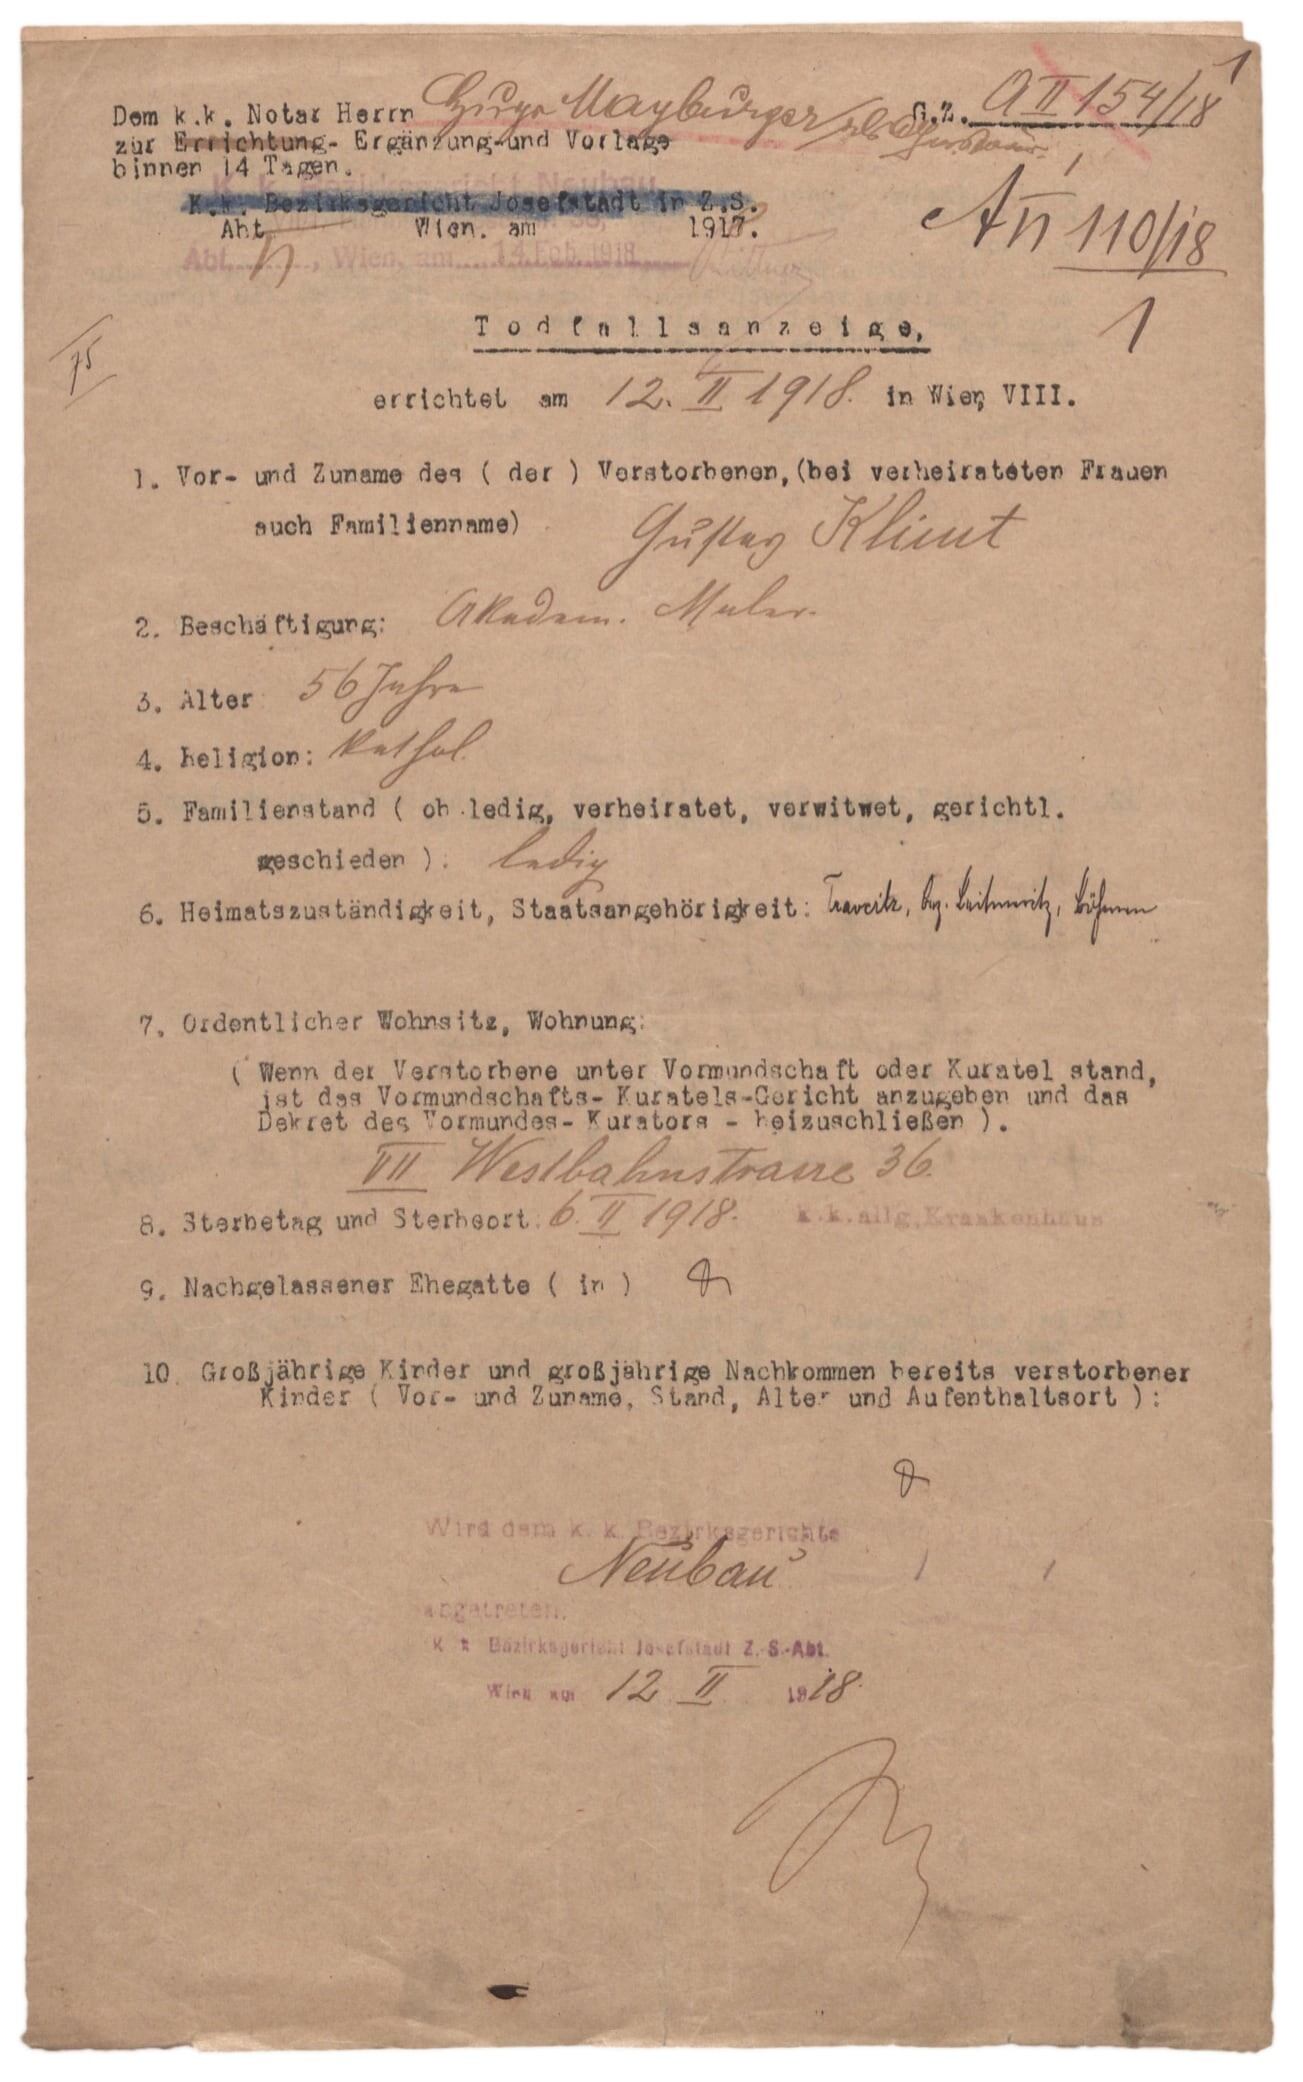 1
Dem k.k. Notar Herrn Hugo Mayburger als G.Z. A II 154/18
zur Errichtung- Ergänzung-und Vorlage
binnen 14 Tagen.
k. k. Bezirksgericht Neubau
K.k. Bezirksgericht Josefstadt in Z.S.
Abt. Wien. am 1917.
Abt. II, Wien, am 14. Feb. 1918
A II 110/18
1
Todfallsanzeige,
75
errichtet am 12. II 1918. in Wien, VIII.
1. Vor- und Zuname des ( der ) Verstorbenen,(bei verheirateten Frauen
auch Familienname) Gustav Klimt
2. Beschäftigung: Akadem. Maler
3. Alter 56 Jahre
4. Religion: kathol.
5. Familienstand ( ob ledig, verheiratet, verwitwet, gerichtl.
geschieden ). ledig
6. Heimatszuständigkeit, Staatsangehörigkeit: Travcitz, Bz. Leitmeritz, Böhmen
7. Ordentlicher Wohnsitz, Wohnung:
( Wenn der Verstorbene unter Vormundschaft oder Kuratel stand,
ist das Vormundschafts- Kuratels-Gericht anzugeben und das
Dekret des Vormundes- Kurators - beizuschließen ).
VII Westbahnstrasse 36.
8. Sterbetag und Sterbeort: 6. II 1918. k.k.allg.Krankenhaus
9. Nachgelassener Ehegatte ( in )
10. Großjährige Kinder und großjährige Nachkommen bereits verstorbener
Kinder ( Vor- und Zuname, Stand, Alter und Aufenthaltsort ):
Wird dem k. k. Bezirksgerichte
Neubau
abgetreten.
K. k. Bezirksgericht Josefstadt Z.-S.-Abt.
Wien am 12 II 1918.